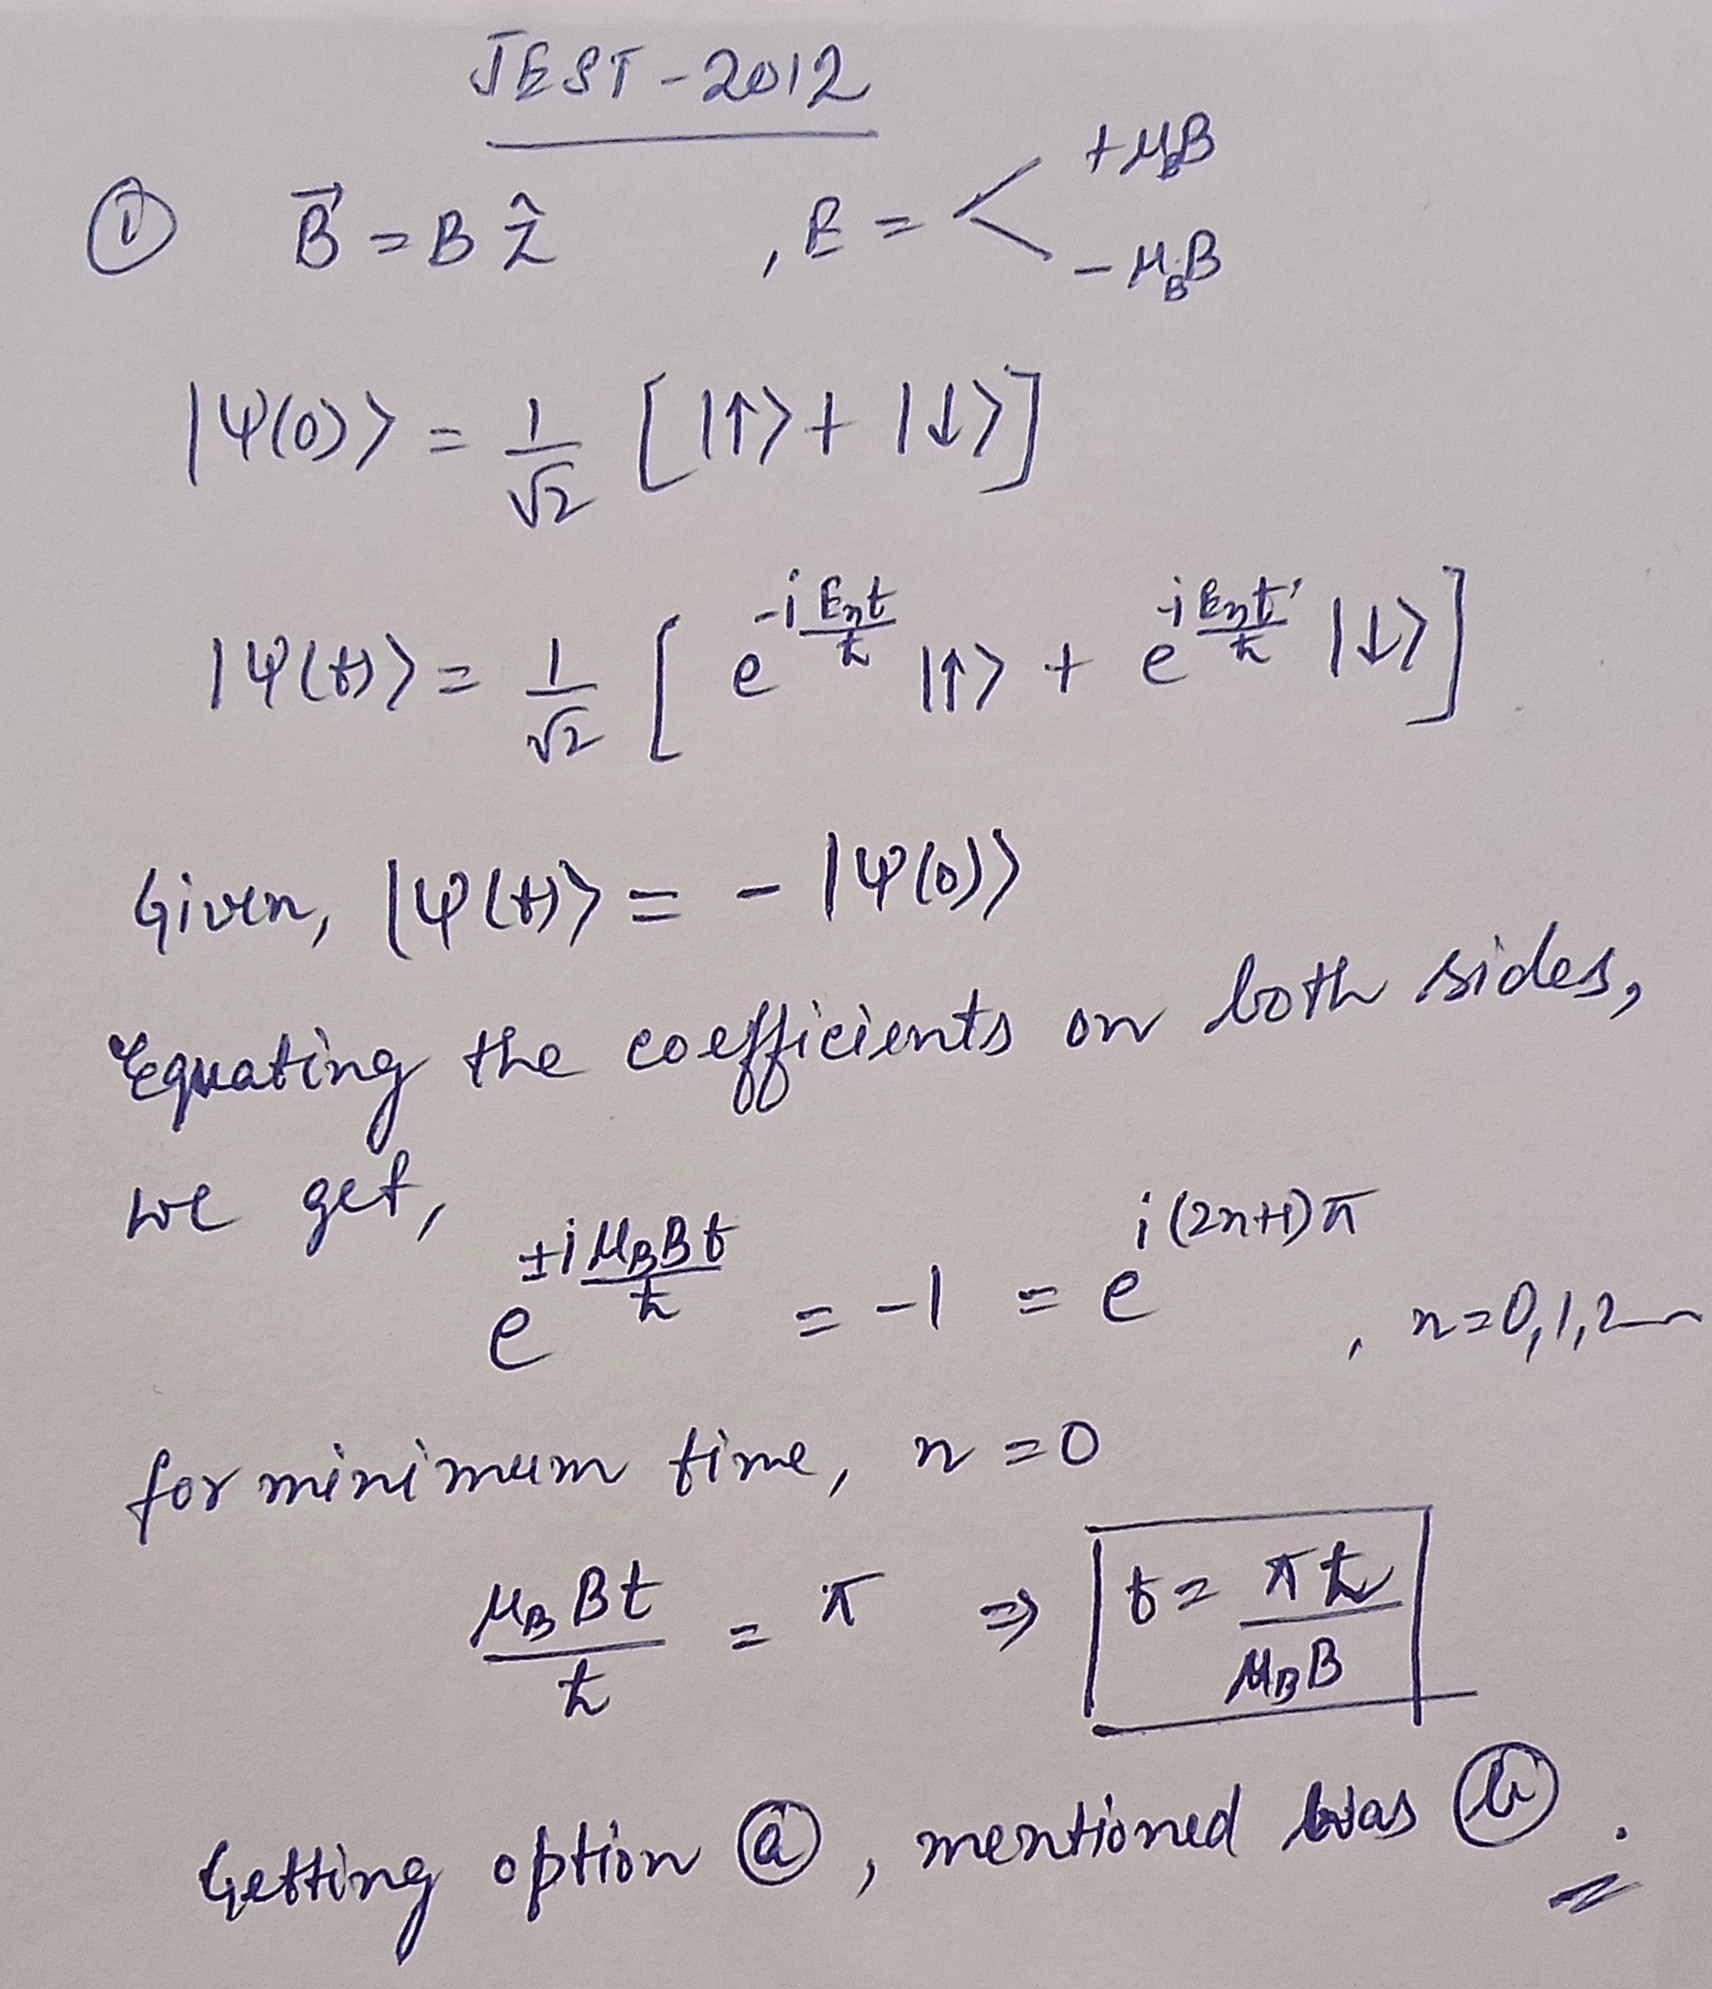 JEST-2012
① B⃗ = B ẑ , E = < +μ_B B
- μ_B B
|Ψ(0)> = 1/√2 [|↑> + |↓>]
|Ψ(t)> = 1/√2 [e^(-i E_n t/ħ) |↑> + e^(i E_n t/ħ) |↓>]
Given, |Ψ(t)> = - |Ψ(0)>
Equating the coefficients on both sides,
we get,
e^(±i μ_B B t/ħ) = -1 = e^(i(2n+1)π) , n=0,1,2
for minimum time, n=0
μ_B B t/ħ = π ⇒ t = πħ/μ_B B
Getting option ⓐ, mentioned was ⓑ.